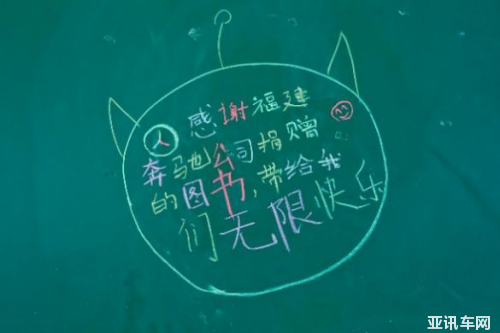 感谢福建
奔驰公司捐赠
的图书,带给我
们无限快乐
亚讯车网